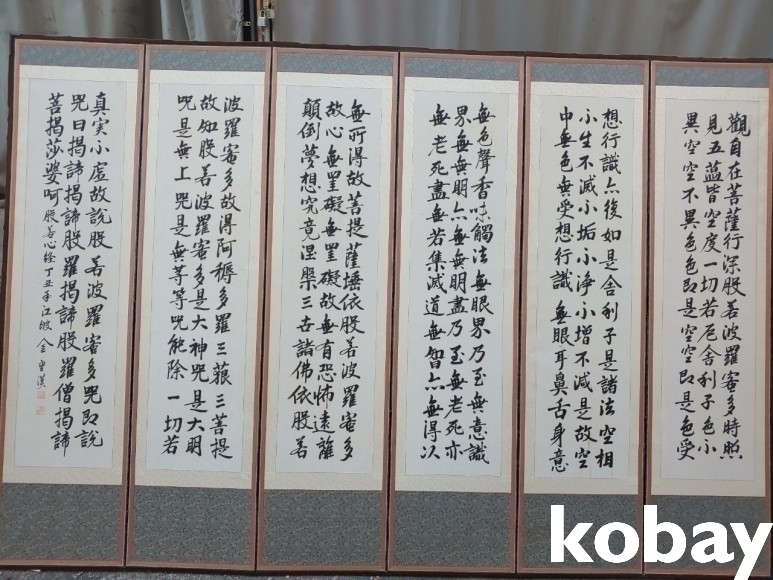 觀自在菩薩行深般若波羅蜜多時照
見五蘊皆空度一切若厄舍利子色小
異空空不異色色即是空空即是色受
想行識亦復如是舍利子是諸法空相
小生不滅小垢小淨小增不減是故空
中無色無受想行識無眼耳鼻舌身意
無色聲香味觸法無眼界乃至無意識
界無無明亦無無明盡乃至無老死亦
無老死盡無若集滅道無智亦無得以
無所得故菩提薩埵依般若波羅蜜多
故心無罣礙無罣礙故無有恐怖遠離
顛倒夢想究竟涅槃三世諸佛依般若
波羅蜜多故得阿耨多羅三藐三菩提
故知般若波羅蜜多是大神咒是大明
咒是無上咒是無等等咒能除一切若
真实小虛故說般若波羅蜜多咒即說
咒曰揭諦揭諦般羅揭諦般羅僧揭諦
菩揭莎婆呵 般若心経 丁丑 江 金
kobay